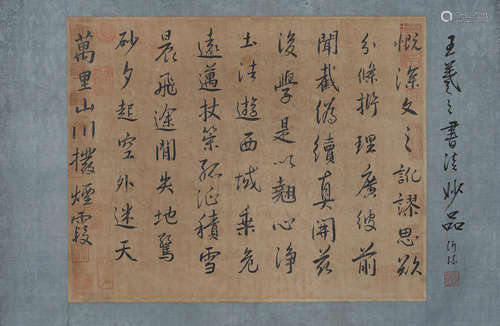 王羲之書法妙品
慨深文之訛謬思欲
分條析理廣彼前
聞截偽續真開茲
後學是以翹心淨
土法遊西域乘危
遠邁杖策孤征積雪
晨飛途間失地驚
砂夕起空外迷天
萬里山川撥煙霞